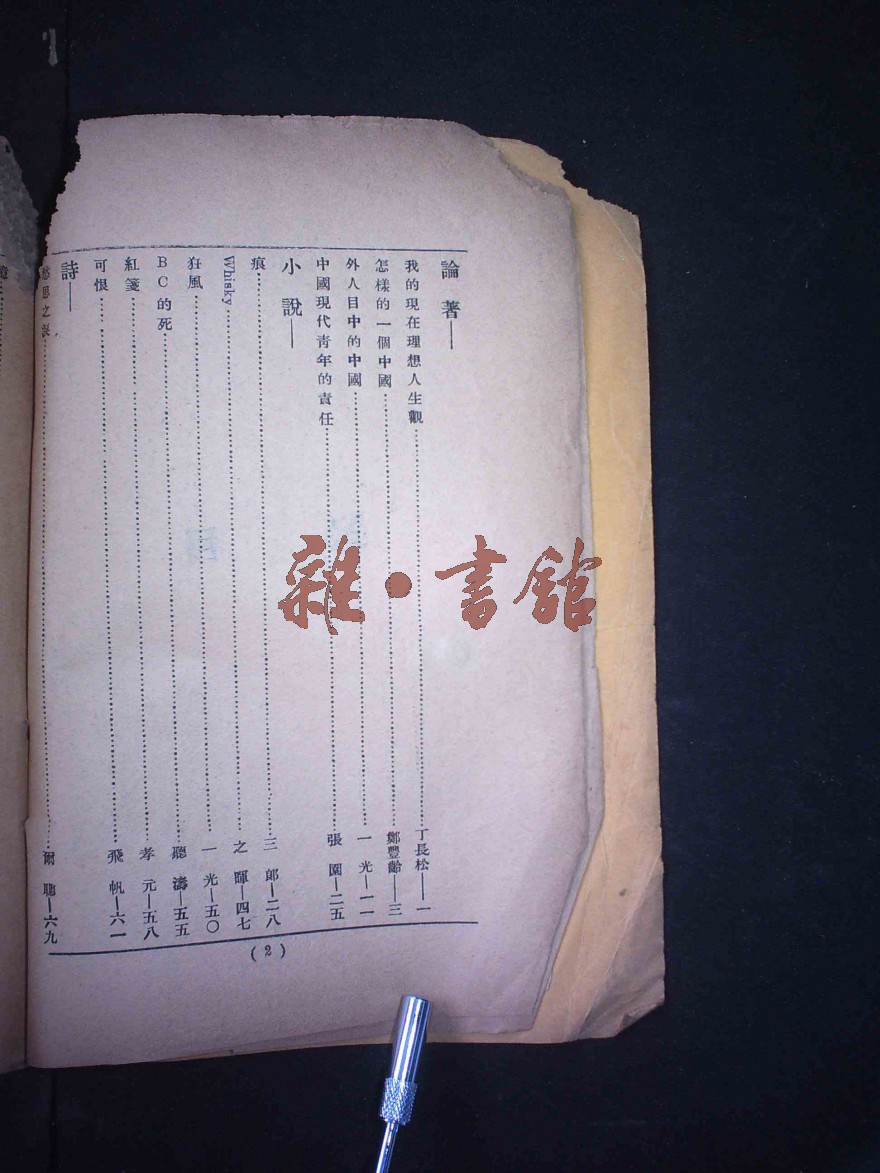 論著——
我的現在理想人生觀……丁長松—一
怎樣的一個中國……鄭豐齡—三
外人目中的中國……一光—一一
中國現代靑年的責任……張園—二五
小說——
痕……三郎—二八
Whisky……之暉—四七
狂風……一光—五〇
BC的死……聽濤—五五
紅箋……孝元—五八
可恨……飛帆—六一
詩——
思之……爾聰—六九
(2)
雜·書館